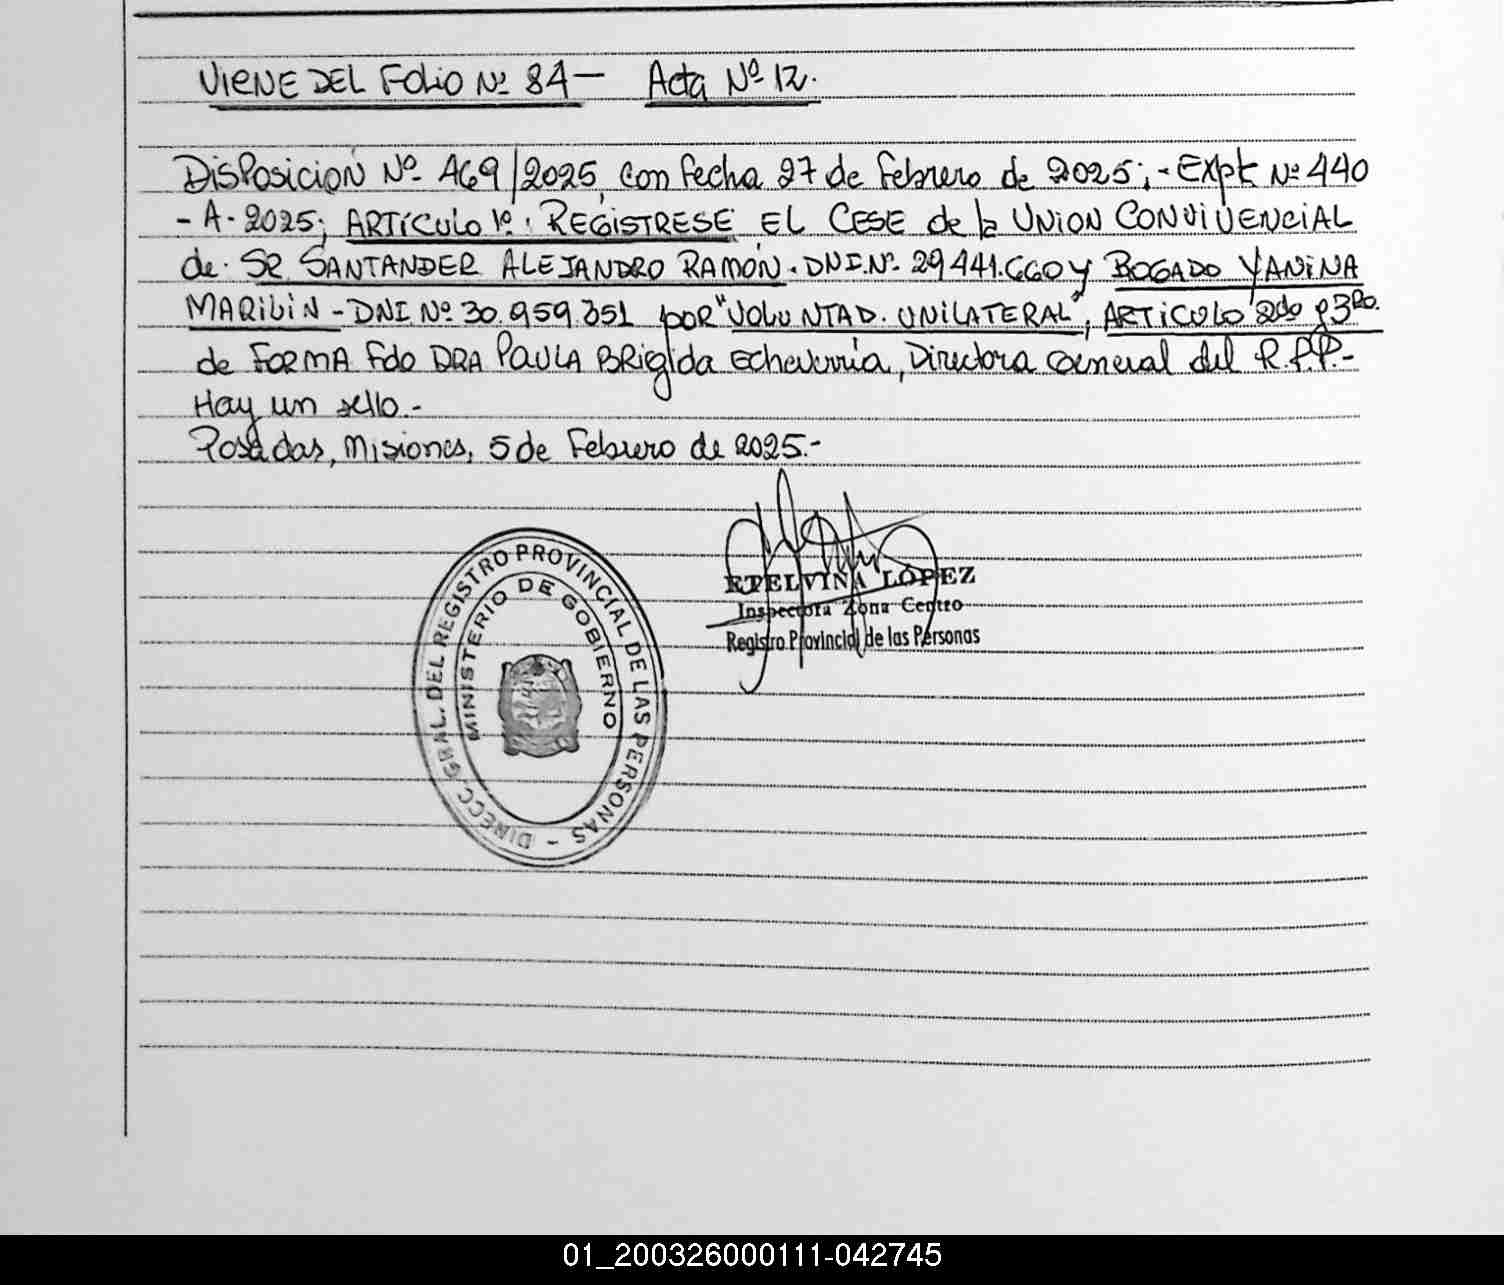 VIENE DEL FOLIO Nº 84 — Acta Nº 12.
DISPOSICION Nº 469/2025, con fecha 27 de febrero de 2025; - EXpte Nº 440
- A - 2025; ARTÍCULO 1º: REGISTRESE EL CESE de la UNION CONVIVENCIAL
de: SR SANTANDER ALEJANDRO RAMÓN. DNI.Nº 29.441.660 y BOGADO YANINA
MARILIN - DNI Nº 30.959.351 por "VOLUNTAD. UNILATERAL", ARTICULO 2do y 3ro.
de FORMA Fdo DRA PAULA BRIGIDA Echeverria, Directora General del R.P.P.-
Hay un sello.-
Posadas, Misiones, 5 de Febrero de 2025.-
ETELVINA LOPEZ
Inspectora Zona Centro
Registro Provincial de las Personas
DIRECC. GRAL. DEL REGISTRO PROVINCIAL DE LAS PERSONAS -
MINISTERIO DE GOBIERNO
01_200326000111-042745